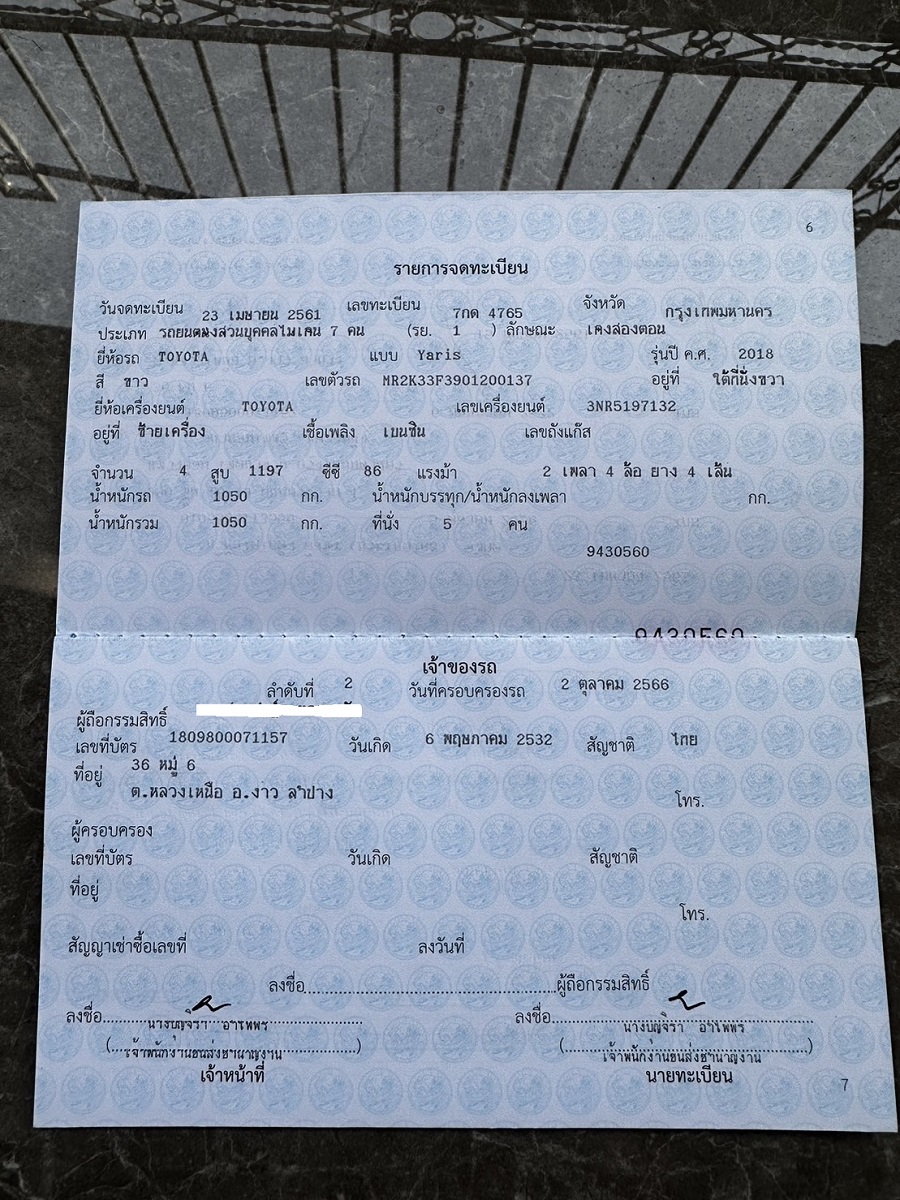 6
รายการจดทะเบียน
วันจดทะเบียน 23 เมษายน 2561 เลขทะเบียน 7กด 4765 จังหวัด กรุงเทพมหานคร
ประเภท รถยนต์นั่งส่วนบุคคลไม่เกิน 7 คน (รย. 1 ) ลักษณะ เก๋งสองตอน
ยี่ห้อรถ TOYOTA แบบ Yaris รุ่นปี ค.ศ. 2018
สี ขาว เลขตัวรถ MR2K33F3901200137 อยู่ที่ ใต้ที่นั่งขวา
ยี่ห้อเครื่องยนต์ TOYOTA เลขเครื่องยนต์ 3NR5197132
อยู่ที่ ซ้ายเครื่อง เชื้อเพลิง เบนซิน เลขถังแก๊ส
จำนวน 4 สูบ 1197 ซีซี 86 แรงม้า 2 เพลา 4 ล้อ ยาง 4 เส้น
น้ำหนักรถ 1050 กก. น้ำหนักบรรทุก/น้ำหนักลงเพลา กก.
น้ำหนักรวม 1050 กก. ที่นั่ง 5 คน
9430560
9430560
เจ้าของรถ
ลำดับที่ 2 วันที่ครอบครองรถ 2 ตุลาคม 2566
ผู้ถือกรรมสิทธิ์
เลขที่บัตร 1809800071157 วันเกิด 6 พฤษภาคม 2532 สัญชาติ ไทย
ที่อยู่ 36 หมู่ 6
ต.หลวงเหนือ อ.งาว ลำปาง โทร.
ผู้ครอบครอง
เลขที่บัตร วันเกิด สัญชาติ
ที่อยู่
โทร.
สัญญาเช่าซื้อเลขที่ ลงวันที่
ลงชื่อ ผู้ถือกรรมสิทธิ์
ลงชื่อ ลงชื่อ
(เจ้าพนักงานขนส่งชำนาญงาน) (เจ้าพนักงานขนส่งชำนาญงาน)
เจ้าหน้าที่ นายทะเบียน
7